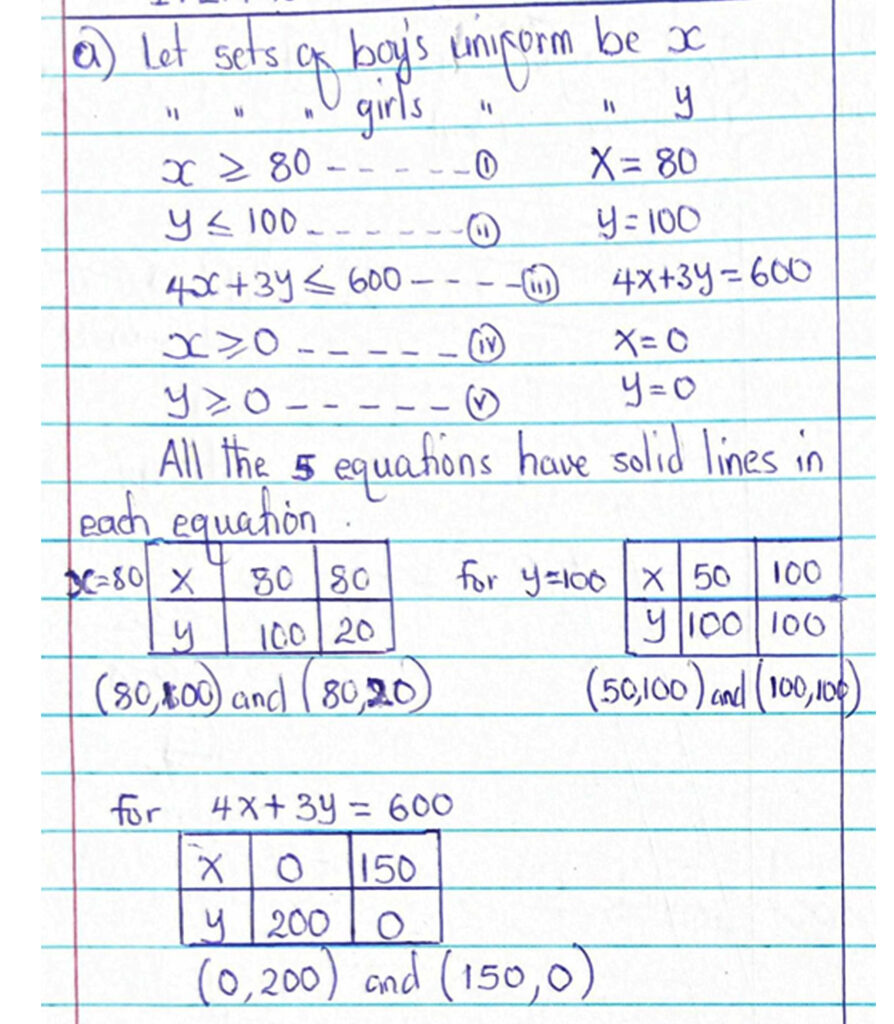 a) Let sets of boy's uniform be x
" " " girls " " y
x ≥ 80 ------(i) X = 80
y ≤ 100 -------(ii) y = 100
4x+3y ≤ 600 ----(iii) 4x+3y = 600
x ≥ 0 ------(iv) x = 0
y ≥ 0 ------(v) y = 0
All the 5 equations have solid lines in
each equation.
x=80 x 80 80 for y=100 x 50 100
y 100 20 y 100 100
(80,100) and (80,20) (50,100) and (100,100)
for 4x+3y = 600
x 0 150
y 200 0
(0,200) and (150,0)